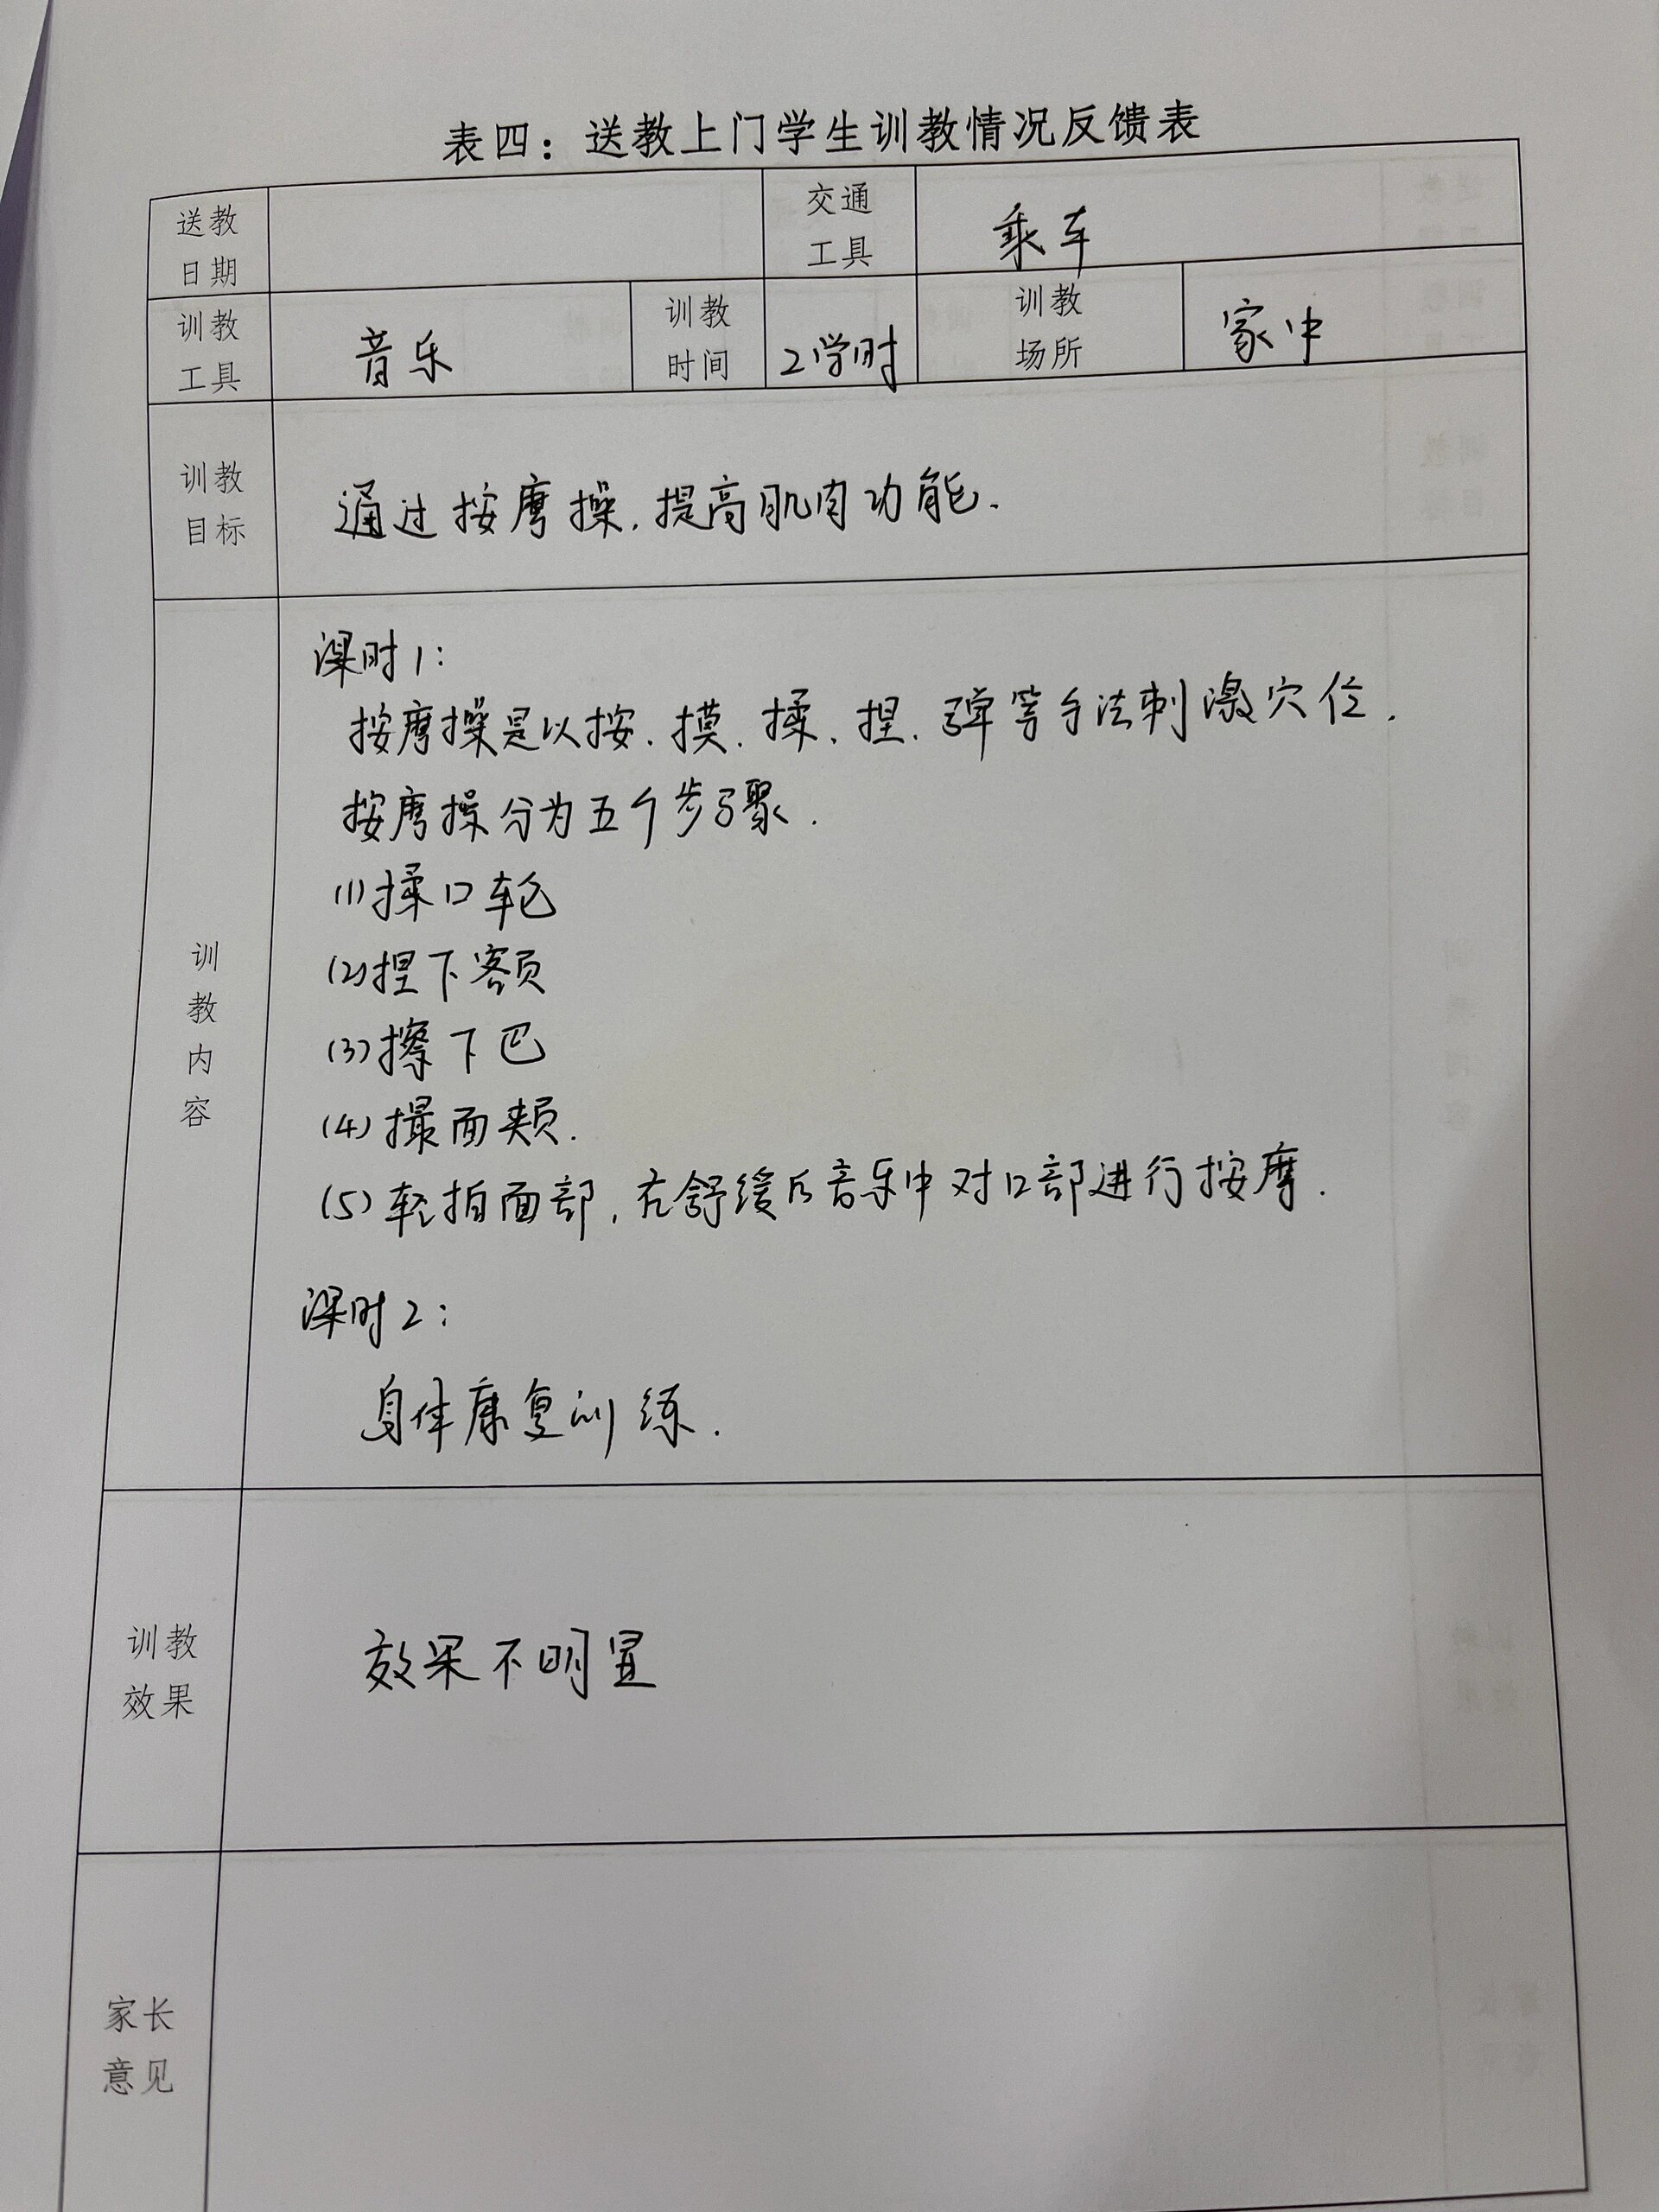 表四：送教上门学生训教情况反馈表
送教
日期
交通
工具
乘车
训教
工具
音乐
训教
时间
2学时
训教
场所
家中
训教
目标
通过按摩操，提高肌肉功能.
训
教
内
容
课时1：
按摩操是以按、摸、揉、捏、弹等手法刺激穴位.
按摩操分为五个步骤.
(1)揉口轮
(2)捏下额
(3)擦下巴
(4)撮面颊.
(5)轻拍面部，在舒缓的音乐中对口部进行按摩.
课时2：
身体康复训练.
训教
效果
效果不明显
家长
意见